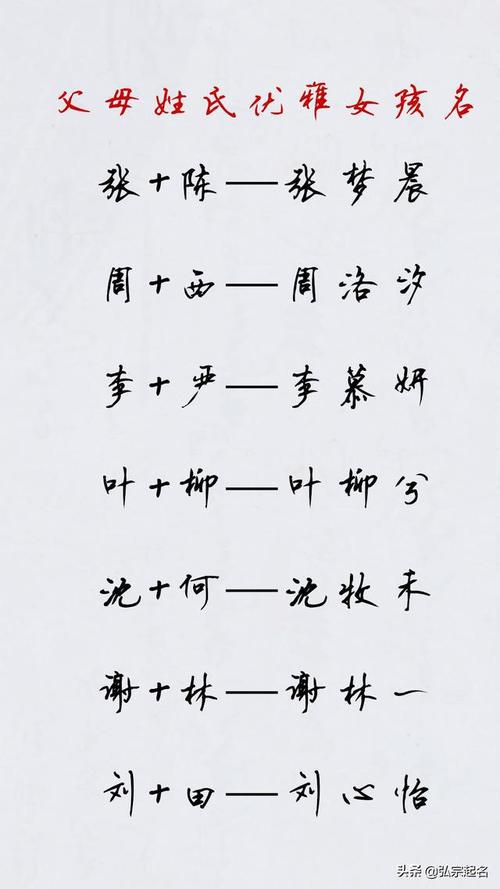 父母姓氏优雅女孩名
张+陈——张梦晨
周+西——周洛汐
李+严——李慕妍
叶+柳——叶柳兮
沈+何——沈牧未
谢+林——谢林一
刘+田——刘心怡
头条 @弘宗起名